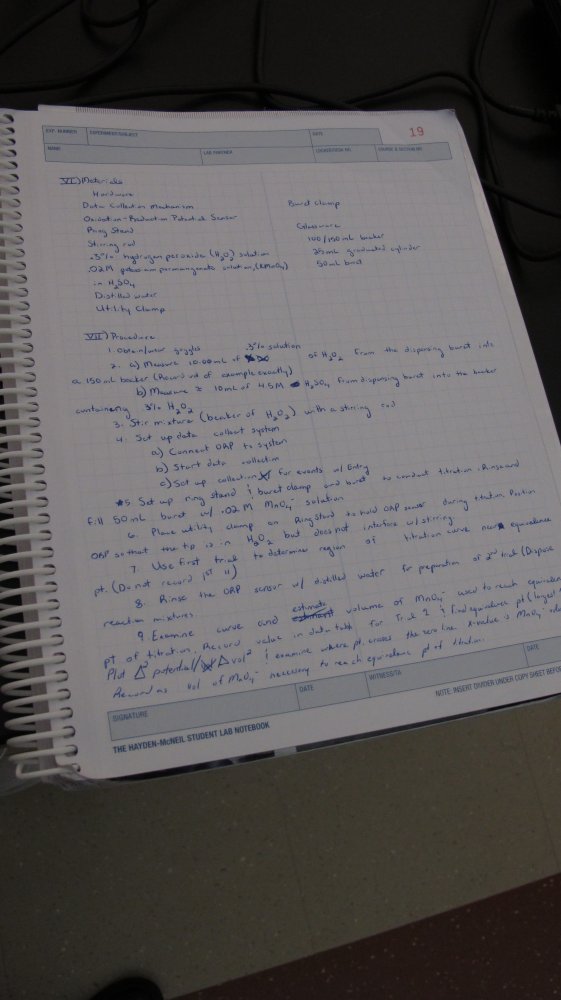 EXP. NUMBER EXPERIMENT/SUBJECT DATE 19
NAME LAB PARTNER LOCKER/DESK NO. COURSE & SECTION NO.
VI.) Materials
Hardware
Data Collection Mechanism Buret Clamp
Oxidation-Reduction Potential Sensor
Ring Stand Glassware
Stirring rod 100/150 mL beaker
.3% hydrogen peroxide (H2O2) solution 25mL graduated cylinder
.02M potassium permanganate solution, (KMnO4) 50mL buret
in H2SO4
Distilled water
Utility Clamp
VII.) Procedure
1. Obtain/wear goggles
.3% solution
2. a) Measure 10.00mL of of H2O2 from the dispensing buret into
a 150 mL beaker (Record vol of example exactly)
b) Measure ≈ 10mL of 4.5M H2SO4 from dispensing buret into the beaker
containing .3% H2O2
3. Stir mixture (beaker of H2O2) with a stirring rod
4. Set up data collect system
a) Connect ORP to system
b) Start data collection
c) Set up collection for events w/ Entry
*5. Set up ring stand & buret clamp and buret to conduct titration. Rinse and
fill 50mL buret w/ .02M MnO4- solution
6. Place utility clamp on Ringstand to hold ORP sensor during titration. Position
ORP so that the tip is in H2O2 but does not interfere w/ stirring
7. Use first trial to determine region of titration curve near equivalence
pt. (Do not record 1st
8. Rinse the ORP sensor w/ distilled water for preparation of 2nd trial (Dispose
reaction mixtures
9. Examine curve and estimate volume of MnO4- used to reach equivalence
pt of titration. Record value in data table for Trial 2 & find equivalence pt (largest
Plot Δ2 potential/Δvol2 & examine where pt. crosses the zero line. X-value is MnO4-
Record as vol of MnO4- necessary to reach equivalence pt of titration.
SIGNATURE DATE WITNESS/TA DATE
THE HAYDEN-McNEIL STUDENT LAB NOTEBOOK NOTE: INSERT DIVIDER UNDER COPY SHEET BEFOR